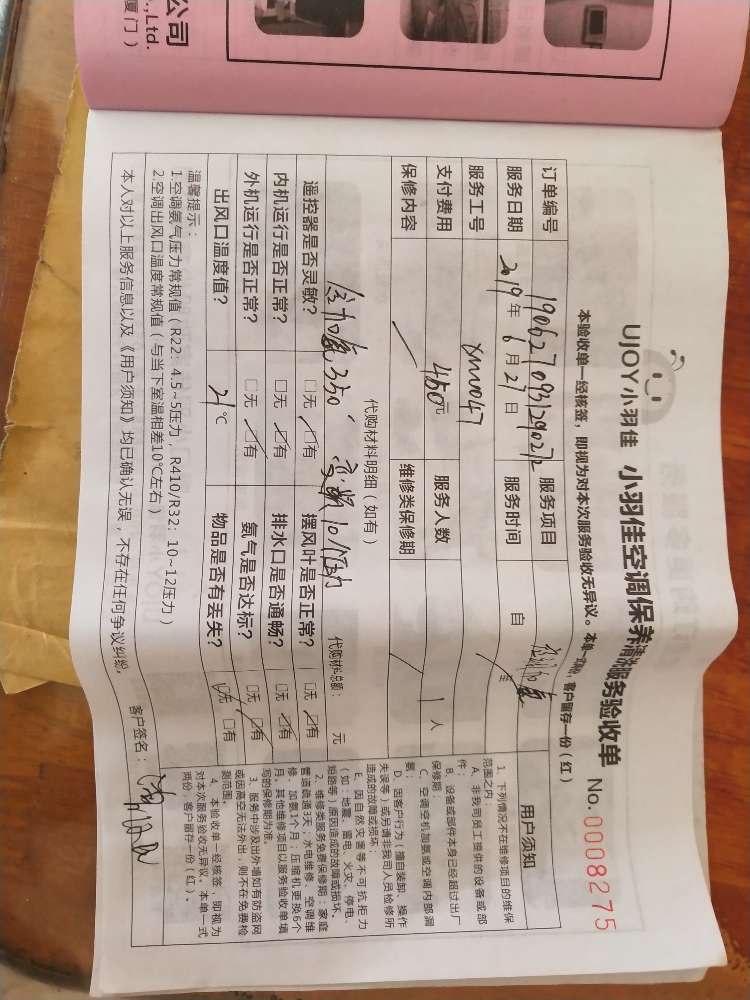 公司
., Ltd.
厦门）
UJOY小羽佳 小羽佳空调保养清洗服务验收单 No.0008275
本验收单一经核签，即视为对本次服务验收无异议。本单一式两份，客户留存一份（红）
订单编号 服务项目
服务日期 2019年6月27日 服务时间 自 至
服务工号 XM1047
支付费用 450元 服务人数 1人
保修内容 维修类保修期
代购材料明细（如有） 代购材料总额： 元
含加氟350，
遥控器是否灵敏？ □无 □有 摆风叶是否正常？ □无 □有
内机运行是否正常？ □无 □有 排水口是否通畅？ □无 □有
外机运行是否正常？ □无 □有 氨气是否达标？ □无 □有
出风口温度值？ 21℃ 物品是否有丢失？ □无 □有
温馨提示：
1.空调氨气压力常规值（R22：4.5~5压力，R410/R32：10~12压力）
2.空调出风口温度常规值（与当下室温相差10℃左右）
本人对以上服务信息以及《用户须知》均已确认无误，不存在任何争议纠纷。 客户签名：
用户须知
1、下列情况不在维修项目的维保
范围之内：
A、非我司员工提供的设备或部
件；
B、设备或部件本身已经超过出厂
保修期；
C、空调空机加氨或空调内部漏
氨；
D、因客户行为（擅自装卸、操作
失误等）或另请非我司人员检修所
造成的故障或损坏；
E、因自然灾害等不可抗拒力
（如：地震、雷电、火灾、停电、
短路等）原因造成的故障或损坏。
2、维修类服务免费保修期：家庭
管道疏通3天，水电维修、空调维
修：加氨1个月；压缩机更换6个
月。其他维修项目以服务验收单填
写的保修期为准。
3、服务中涉及出外墙如有防盗网
或因高空无法外出，则不在免费检
测范围。
4、本验收单一经核签，即视为
对本次服务验收无异议。本单一式
两份，客户留存一份（红）。